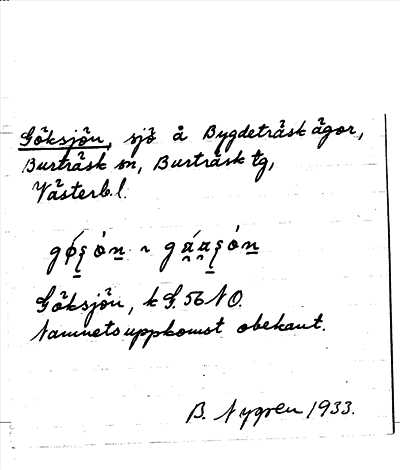 Göksjön, sjö å Bygdeträsk ägor,
Burträsk sn, Burträsk tg,
Västerb. l.
Göksjön, k G. 56 NO.
Namnets uppkomst obekant.
B. Nygren 1933.